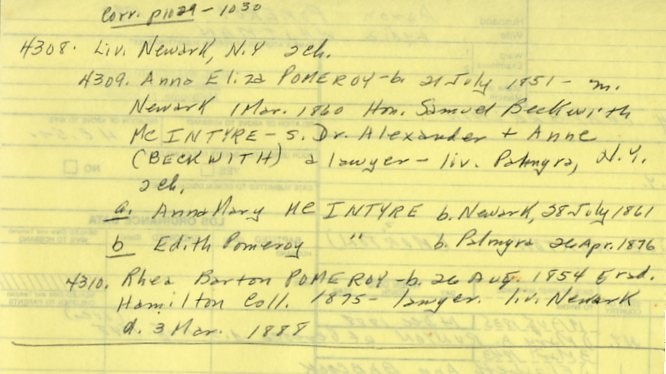 Corr. p1029-1030
4308. Liv. Newark, N.Y 2ch.
4309. Anna Eliza POMEROY-b. 21 July 1851- m.
Newark 1 Mar. 1860 Hon. Samuel Beckwith
MCINTYRE- s. Dr. Alexander + Anne
(BECKWITH) a lawyer- liv. Palmyra, N.Y.
2ch.
a. Anna Mary MCINTYRE b. Newark, 28 July 1861
b Edith Pomeroy " b. Palmyra 26 Apr. 1876
4310. Rhea Barton POMEROY-b. 26 Aug. 1854 Grad.
Hamilton Coll. 1875- lawyer. liv. Newark
d. 3 Mar. 1888